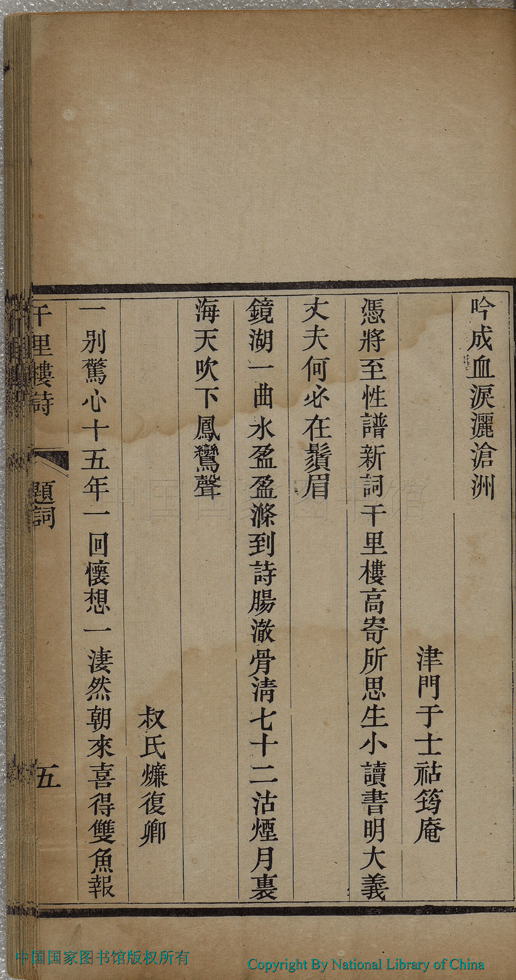 吟成血淚灑滄洲
津門于士祜筠庵
憑將至性譜新詞千里樓高寄所思生小讀書明大義
丈夫何必在鬚眉
鏡湖一曲水盈盈滌到詩腸澈骨淸七十二沽煙月裏
海天吹下鳳鸞聲
叔氏㷠復卿
一別驚心十五年一回懷想一淒然朝來喜得雙魚報
千里樓詩 題詞 五
中国国家图书馆版权所有
Copyright By National Library of China